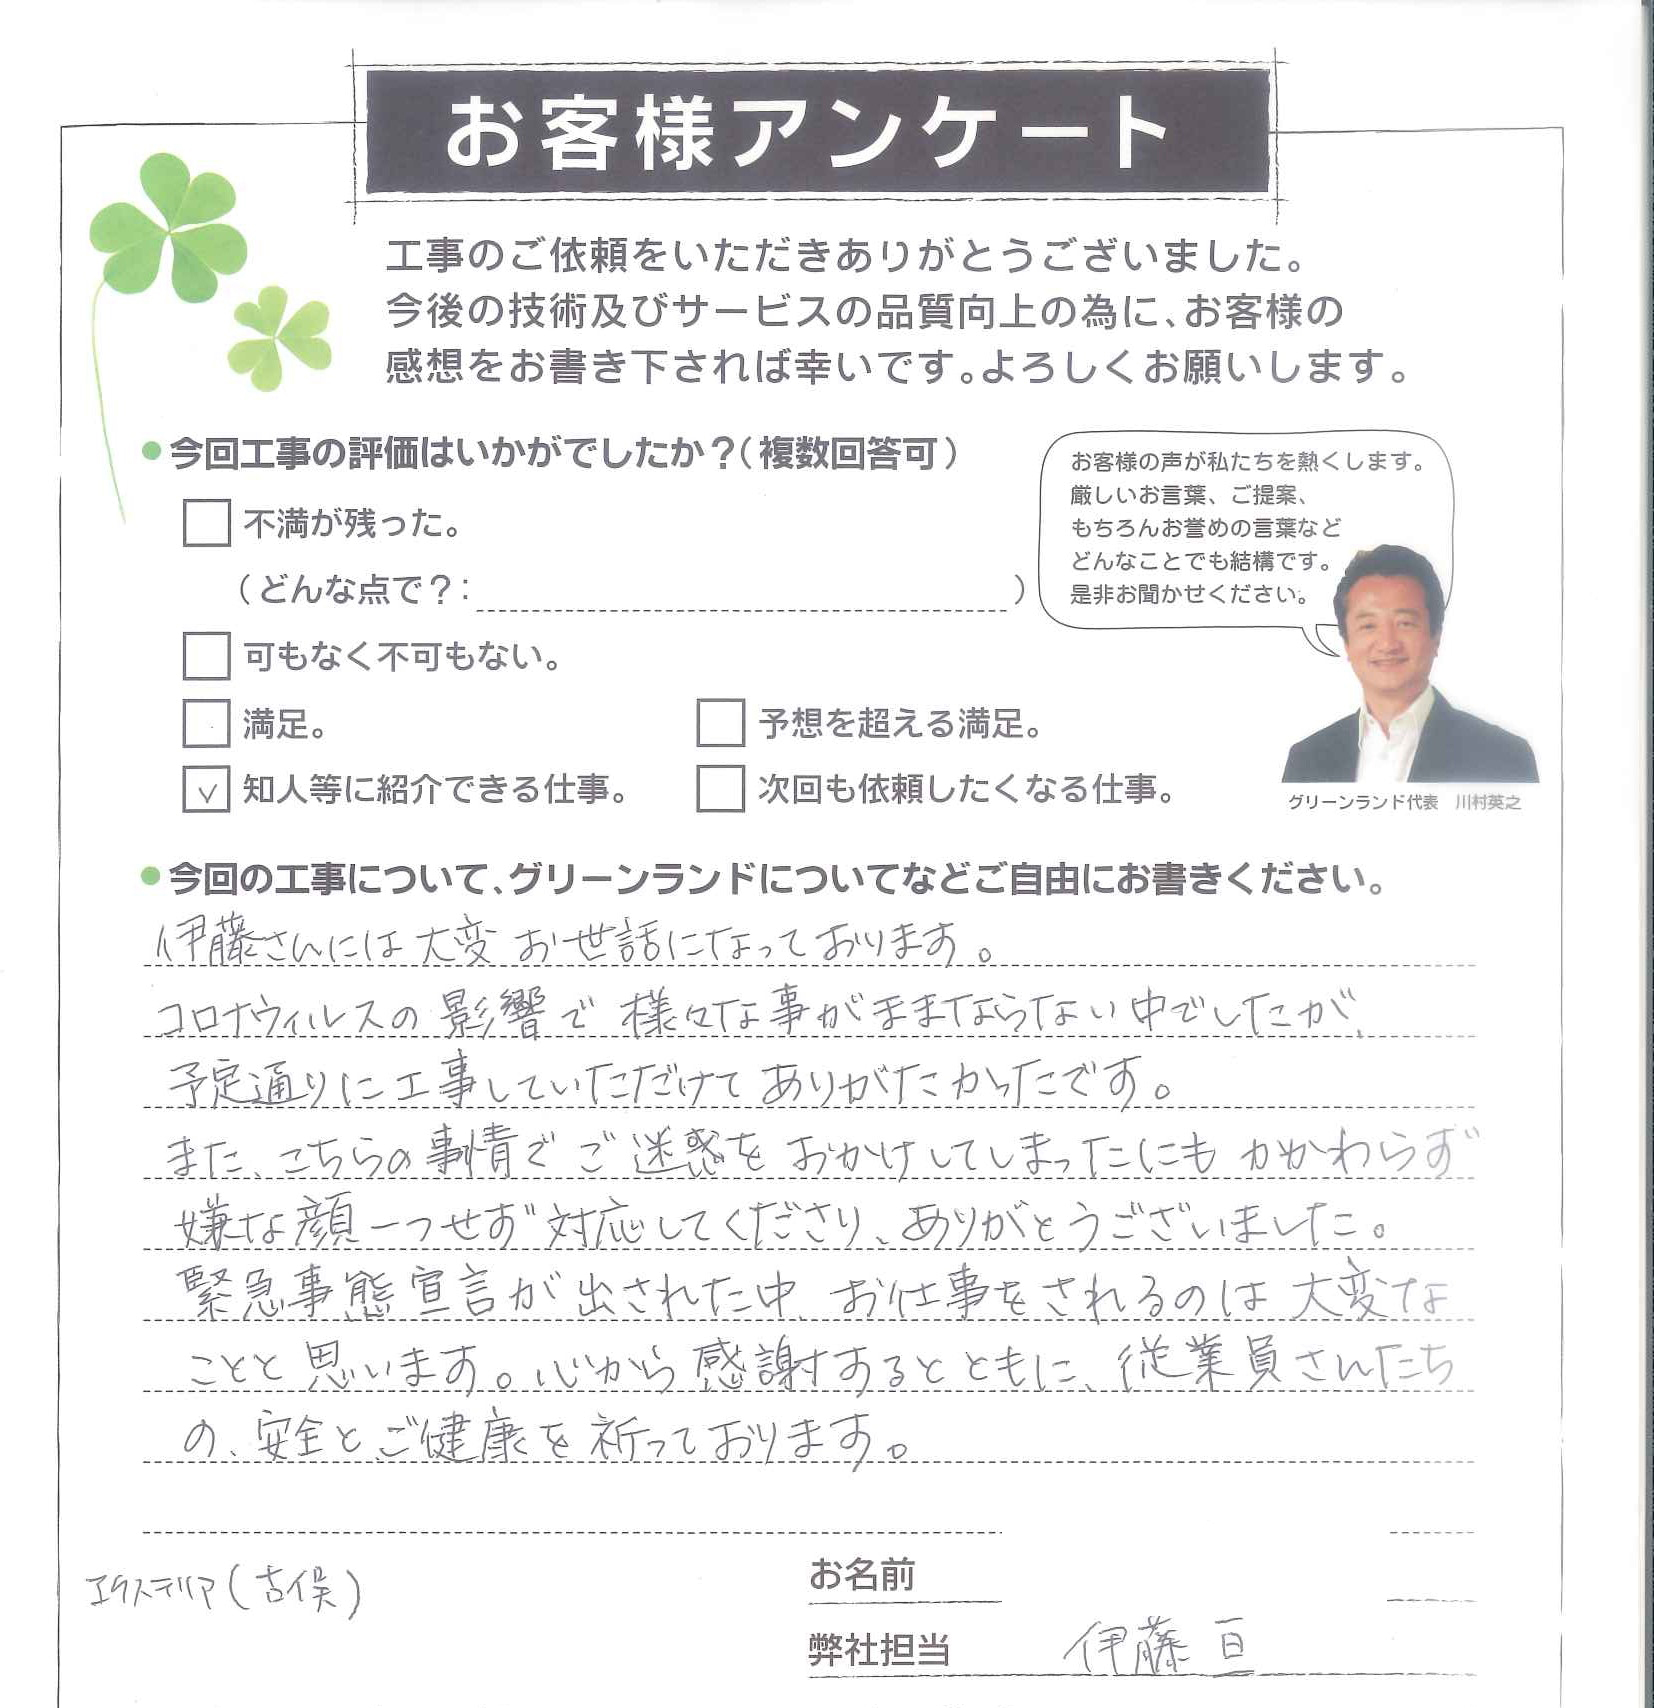 お客様アンケート
工事のご依頼をいただきありがとうございました。
今後の技術及びサービスの品質向上の為に、お客様の
感想をお書き下されば幸いです。よろしくお願いします。
今回工事の評価はいかがでしたか？（複数回答可）
お客様の声が私たちを熱くします。
厳しいお言葉、ご提案、
もちろんお誉めの言葉など
どんなことでも結構です。
是非お聞かせください。
不満が残った。
（どんな点で？：　）
可もなく不可もない。
満足。
予想を超える満足。
知人等に紹介できる仕事。
次回も依頼したくなる仕事。
グリーンランド代表　川村英之
今回の工事について、グリーンランドについてなどご自由にお書きください。
伊藤さんには大変お世話になっております。
コロナウィルスの影響で様々な事がままならない中でしたが、
予定通りに工事していただけてありがたかったです。
また、こちらの事情でご迷惑をおかけしてしまったにもかかわらず
嫌な顔一つせず対応してくださり、ありがとうございました。
緊急事態宣言が出された中、お仕事をされるのは大変な
ことと思います。心から感謝するとともに、従業員さんたち
の、安全とご健康を祈っております。
エクステリア（古俣）
お名前
弊社担当 伊藤 亘